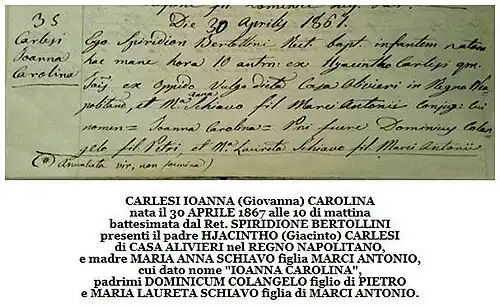 35
Carlesi
Joanna
Carolina
Die 30 Aprilis 1867.
Ego Spiridion Bertollini Rect. bapt. infantem natam
hac mane hora 10 antm. ex Hyacintho Carlesi qm.
ex Oppido vulgo dicto Casa Alivieri in Regno Nea
politano, et Ma. Anna Schiavo fil Marci Antonii conjug: cui
nomen = Joanna Carolina = Pni fuere Dominicus Colan
gelo fil Petri et Ma. Laureta Schiavo fil Marci Antonii
(*) Annuntiata vir, non femina)
CARLESI IOANNA (Giovanna) CAROLINA
nata il 30 APRILE 1867 alle 10 di mattina
battesimata dal Ret. SPIRIDIONE BERTOLLINI
presenti il padre HJACINTHO (Giacinto) CARLESI
di CASA ALIVIERI nel REGNO NAPOLITANO,
e madre MARIA ANNA SCHIAVO figlia MARCI ANTONIO,
cui dato nome "IOANNA CAROLINA",
padrimi DOMINICUM COLANGELO figlio di PIETRO
e MARIA LAURETA SCHIAVO figlia di MARCI ANTONIO.